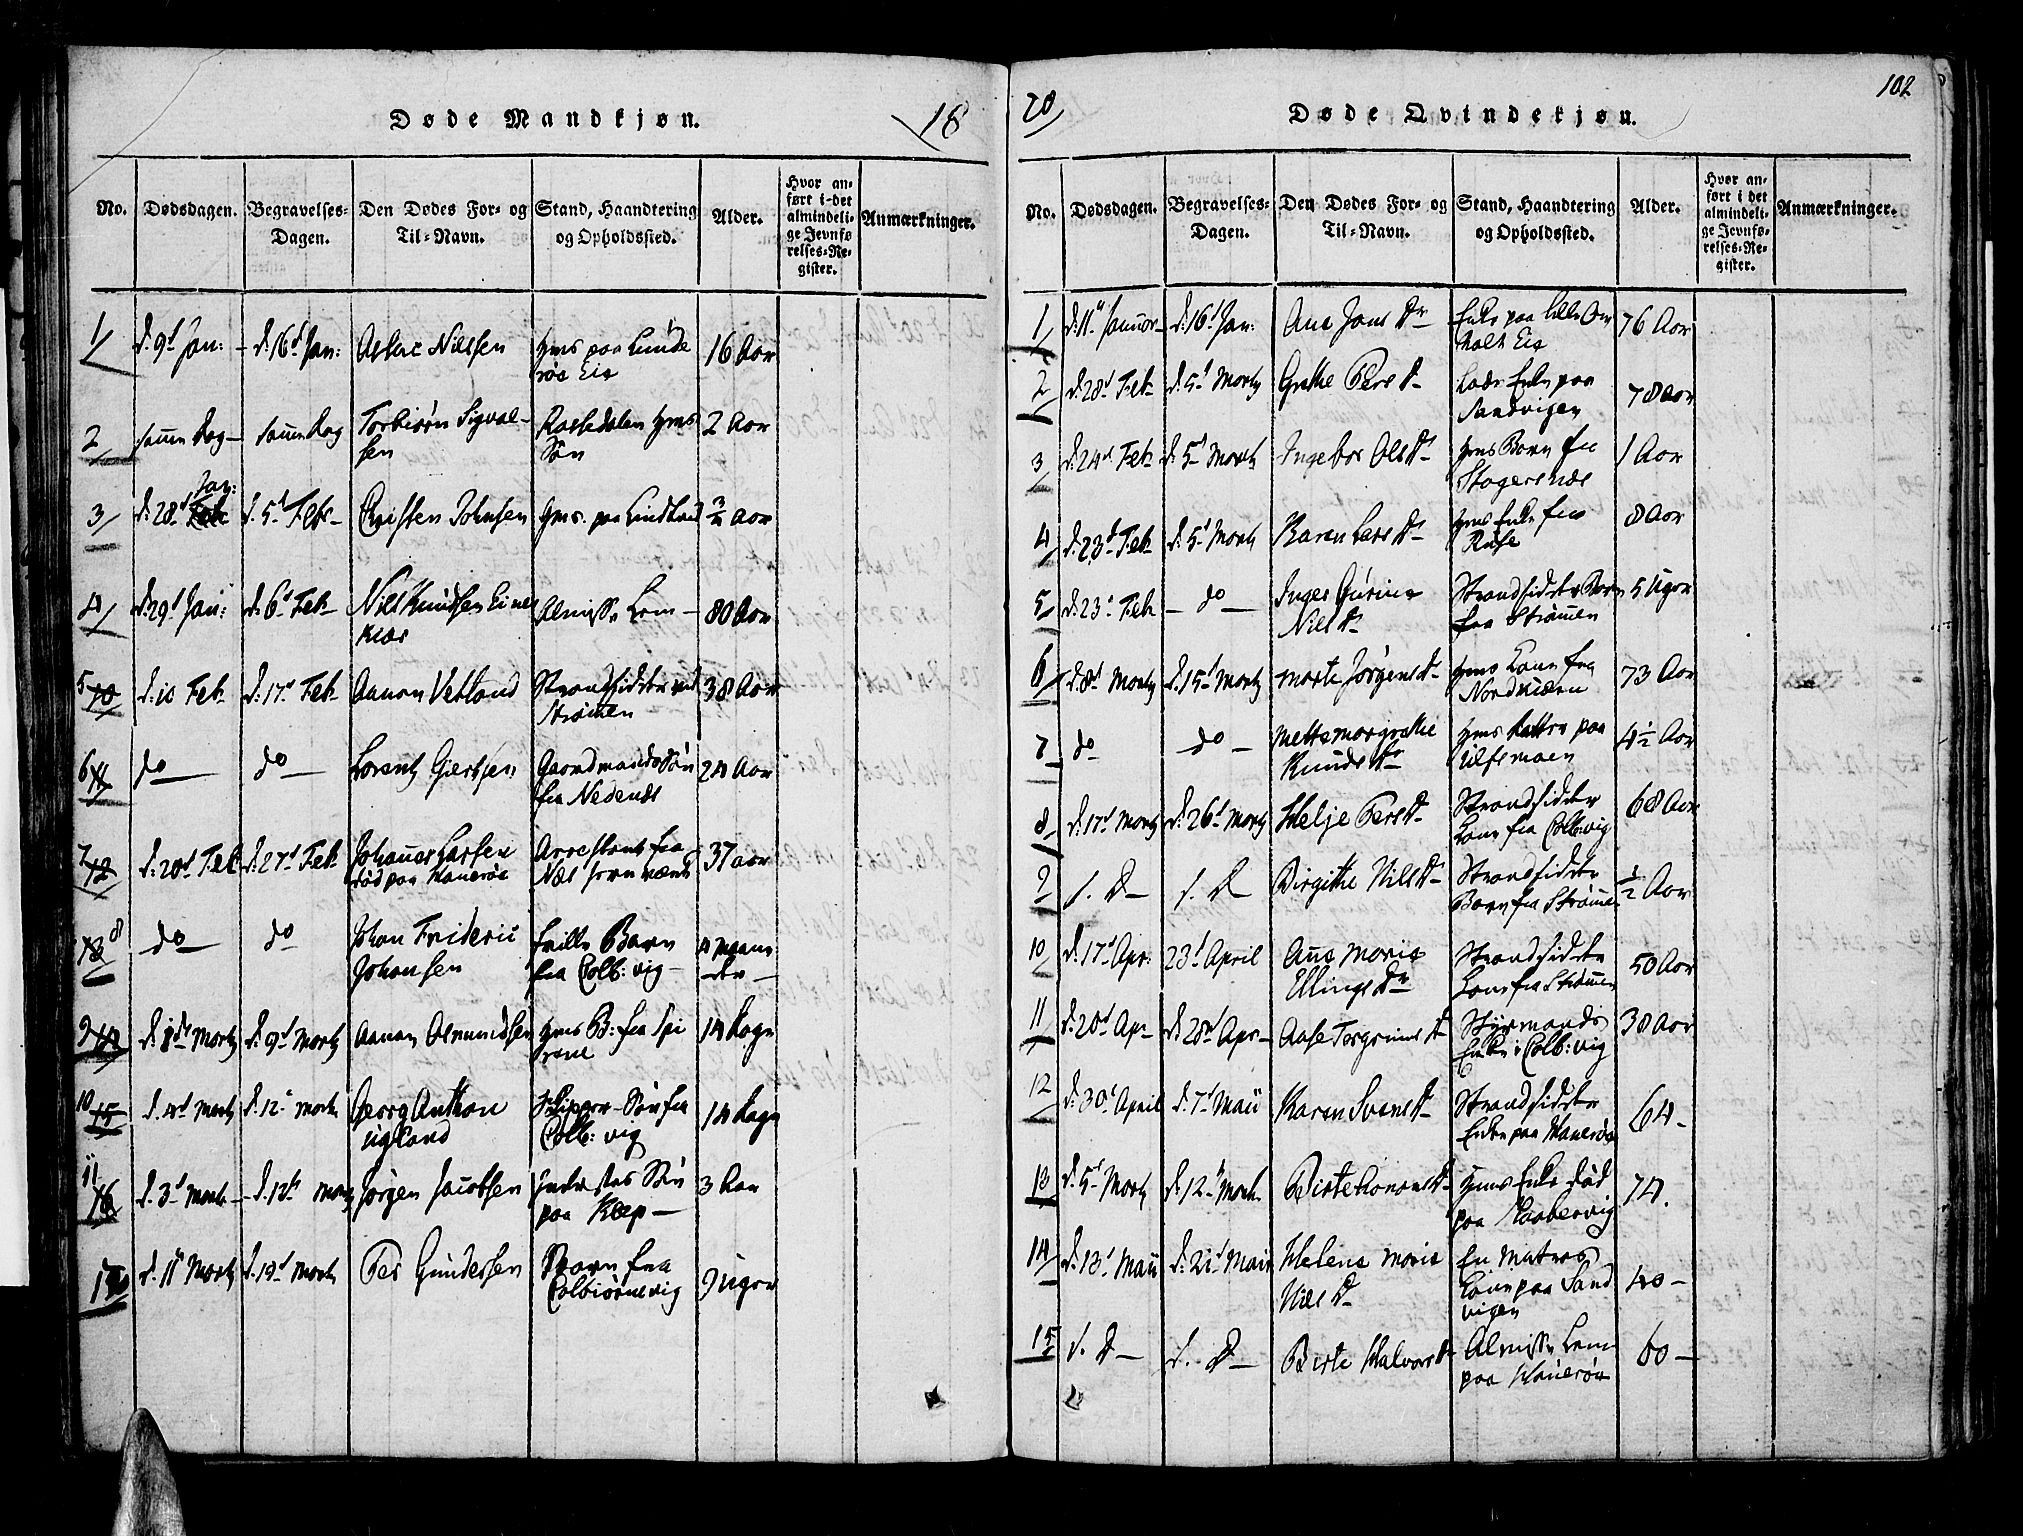 102
Døde Mandkjøn.
18
No.
Dødsdagen.
Begravelses-
Dagen.
Den Dødes For- og
Til-Navn.
Stand, Haandtering
og Opholdssted.
Alder.
Hvor an-
ført i det
almindeli-
ge Jevnfø
relses-Re-
gister.
Anmærkninger.
1
d: 9d Jan:
d: 16d Jan:
Nielssen
16 Aar
2
samme Dag
samme Dag
Torbiørn Sigval-
sen
Søn
2 Aar
3
Jan:
d: 28d Feb
d. 5d Feb
Christen Johnsen
Aar
4
d: 29d Jan:
d: 6d Feb
Niels Knudsen
Almisse Lem
80 Aar
5 10
d: 10 Feb
d: 17d Feb
Aanon Vetland
Strandsidder ved
Strømmen
38 Aar
6 11
do
do
Lorentz Giertsen
Gaardmands Søn
fra Nedenæs
24 Aar
7 12
d: 20d Feb
d: 27d Feb
Johannes Larsen
død paa Hauerøe
Arrestant fra
Næs Jernværk
37 Aar
8 13
do
do
Johan Frideric
Johansen
Barn
fra Colb: vig
4 Maane
der
9 14
d: 1d Martz
d: 9d Martz
Aanon Osmundsen
14 Dage
10 15
d. 4d Martz
d. 12d Martz
Georg Anthon
Ugland
Skipper Søn fra
Colb: vig
14 Dage
11 16
d. 3d Martz
d. 12d Martz
Jørgen Jacobsen
Søn
paa Klep
3 Aar
17
d. 11d Martz
d. 19d Martz
Per Gundersen
Barn fra
Colbiørnsvig
9 Uger
20
Døde Qvindekjøn.
No.
Dødsdagen.
Begravelses-
Dagen.
Den Dødes For- og
Til-Navn.
Stand, Haandtering
og Opholdssted.
Alder.
Hvor an-
ført i det
almindeli-
ge Jevnfø-
relses-Re-
gister.
Anmærkninger.
1
d: 11d Januar
d: 16d Jan:
Ana Jans Dr
Enke paa
Eie
76 Aar
2
d: 28d Feb
d: 5d Martz
Grethe Pers D
Enke paa
Sandvigen
78 Aar
3
d: 24d Feb
d: 5d Martz
Ingebor Ols D
Barn fra
1 Aar
4
d: 23d Feb
d: 5d Martz
Karen Lars D
Enke fra
8 Aar
5
d: 23d Feb
do
Inger Gurine
Niels D
Strandsidder Barn
fra Strømmen
5 Uger
6
d: 8d Martz
d: 15d Martz
Marte Jørgens D
Kone fra
73 Aar
7
do
do
Mette Margrethe
Knuds D
Datter paa
4½ Aar
8
d: 17d Martz
d: 26d Martz
Helje Pers D
Strandsidder
Kone fra Colb: vig
68 Aar
9
d. D
d. D
Birgithe Niels D
Strandsidder
Barn fra Strømmen
½ Aar
10
d: 17d Apr:
23d April
Ana Maria
Ellings Dr
Strandsidder
Kone fra Strømmen
50 Aar
11
d: 20d Apr
d: 28d Apr
Aase Torgrims D
Styrmands
Enke i Colb: vig
38 Aar
12
d: 30d April
d. 7d Maii
Karen Svens D
Strandsidder
Enke paa Hauerøe
64
13
d. 5d Martz
d. 12d Martz
Birte Aanons D
Enke død
paa
74.
14
d: 13d Maii
d: 21d Maii
Helena Maria
Niels D
En Matros
Kone paa Sand
vigen
40
15
d. D
d. D
Birte Halvors D
Almisse Lem
paa Hauerøe
60